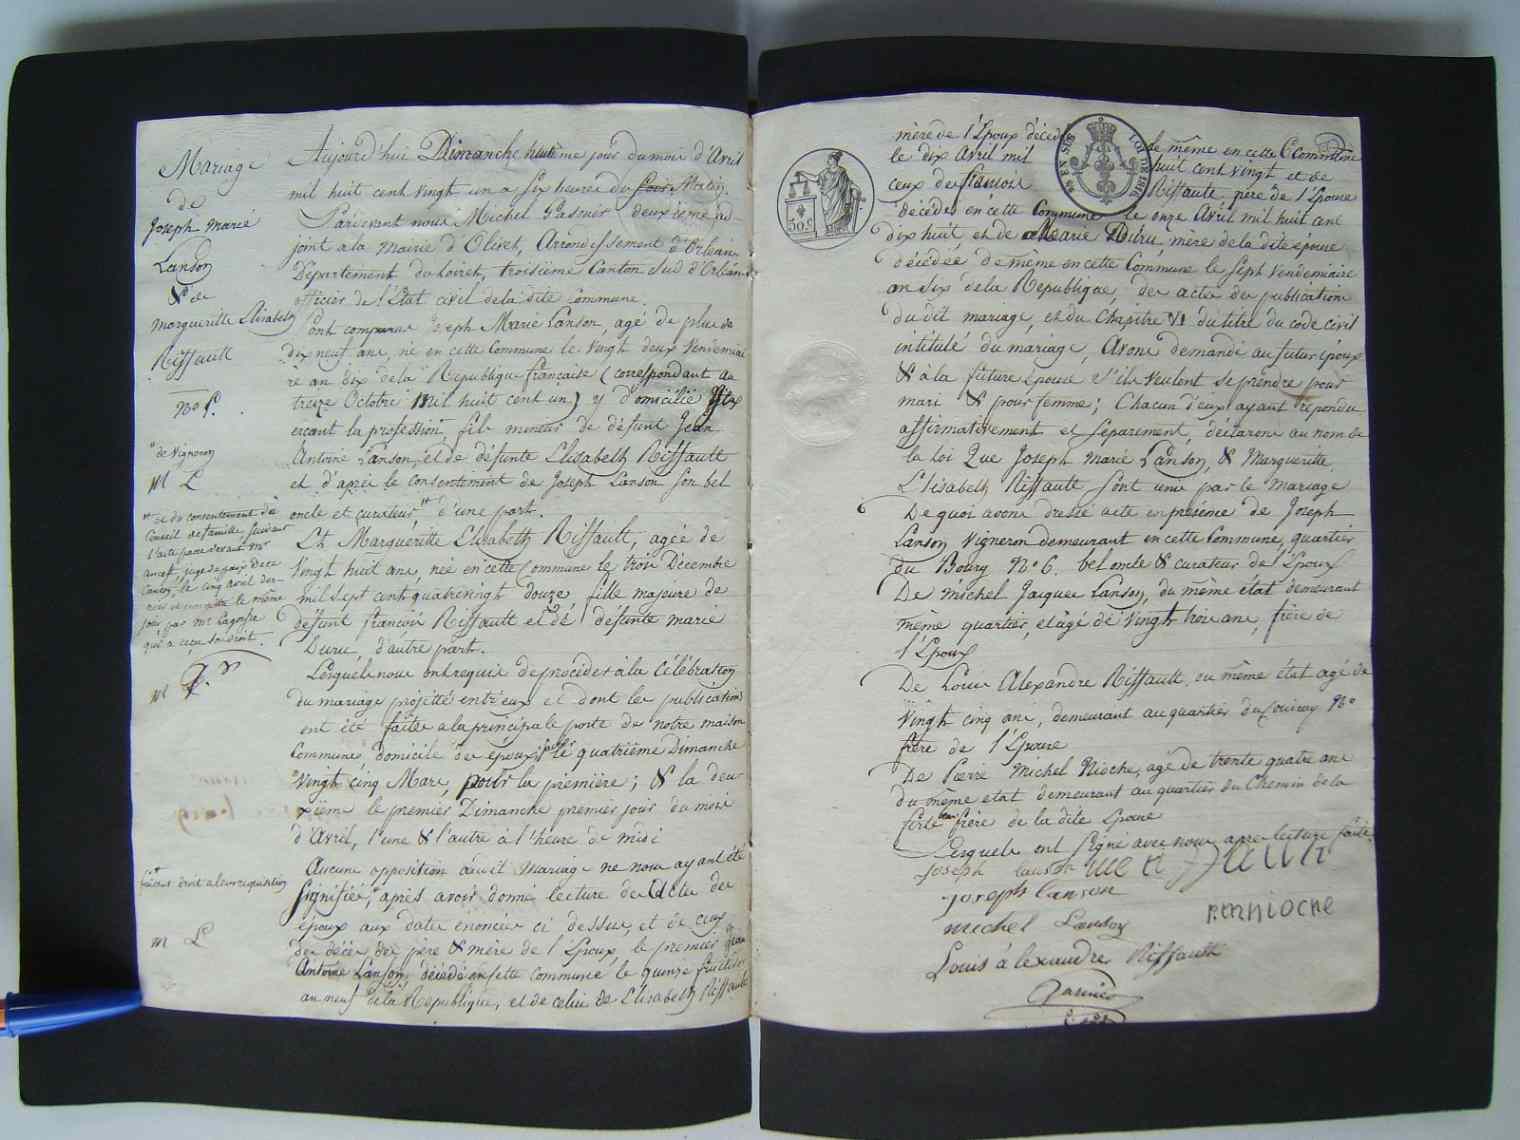 Mariage
de
Joseph Marie
Lanson
& de
Margueritte Elisabeth
Riffault
No 8.
" de Vigneron
M L
" et du consentement du
Conseil de famille suivant
l'acte passé devant Mr
juge de paix de ce
Canton, le cinq avril der-
le même
jour par Mr
qui a reçu
M
faisant droit à leur requisition
M L
Aujourd'hui Dimanche huitième jour du mois d'Avril
mil huit cent vingt un a six heures du soir Matin.
Pardevant nous Michel deuxième ad-
joint a la mairie d'Olivet, Arrondissement d'Orléans
Département du Loiret, troisième Canton Sud d'Orléans
officier de l'État civil de la dite Commune.
Ont comparus Joseph Marie Lanson, agé de plus de
dix neuf ans, né en cette Commune le vingt deux Vendemiai
re an dix de la République française (correspondant au
treize Octobre Mil huit cent un) y domicilié
erçant la profession, fils mineur de défunt Jean
Antoine Lanson, et de défunte Elisabeth Riffault
et d'après le consentement de Joseph Lanson son bel
oncle et curateur " d'une part.
Et Margueritte Elisabeth Riffault, agée de
vingt huit ans, née en cette Commune le trois Décembre
mil sept cent quatrevingt douze fille majeure de
défunt françois Riffault et de défunte marie
Duru, d'autre part.
Lesquels nous ont requis de procéder à la célébration
du mariage projetté entr'eux et dont les publications
ont été faites a la principale porte de notre maison
Commune, domicile des époux, le quatrième Dimanche
Vingt cinq Mars, pour la première; & la deu-
xième le premier Dimanche premier jour du mois
d'Avril, l'une & l'autre à l'heure de midi
Aucune opposition au dit Mariage ne nous ayant été
signifiée, " après avoir donné lecture de l'acte des
époux aux dates énoncées ci dessus, et de ceux
des décès des père & mère de l'Epoux, le premier Jean
Antoine Lanson, décédé en cette commune le quinze fructidor
an neuf de la République, et de celui de Elisabeth Riffault
mère de l'Epoux décédée de même en cette Commune
le dix Avril mil huit cent vingt et de
ceux de françois Riffault, père de l'Epouse
décédés en cette Commune le onze Avril mil huit cent
dix huit et de Marie Duru mère de la dite épouse
décédée de même en cette Commune le sept Vendemiaire
an six de la République, des actes de publication
du dit mariage, et du Chapitre VI du titre du code civil
intitulé du mariage, Avons demandé au futur époux
& à la future épouse s'ils veulent se prendre pour
mari & pour femme; Chacun d'eux ayant repondu
affirmativement et séparement, déclarons au nom de
la loi Que Joseph Marie Lanson, & Margueritte
Elisabeth Riffault sont unis par le Mariage
De quoi avons dressé acte en présence de Joseph
Lanson Vigneron demeurant en cette Commune, quartier
du Bourg No 6. bel oncle & curateur de l'Epoux
De michel Jacques Lanson, du même état demeurant
même quartier, et agé de vingt trois ans, frère de
l'Epoux
De Louis Alexandre Riffault, du même état agé de
Vingt cinq ans, demeurant au quartier du Couvray No
frère de l'Epouse
De Pierre Michel Nioche, agé de trente quatre ans
du même état demeurant au quartier du Chemin de la
ferté beau frère de la dite Epouse
Lesquels ont signé avec nous apres lecture faite
joseph lanson
joseph lanson
michel Lanson
P.M NIOCHE
Louis àlexandre Riffault
50 c
LOI DE 1816